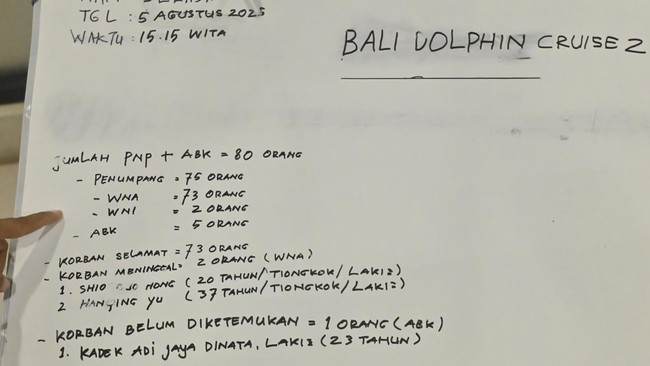 TGL : 5 AGUSTUS 2025
WAKTU : 15.15 WITA
BALI DOLPHIN CRUISE 2
JUMLAH PNP + ABK = 80 ORANG
- PENUMPANG = 75 ORANG
- WNA = 73 ORANG
- WNI = 2 ORANG
- ABK = 5 ORANG
- KORBAN SELAMAT = 73 ORANG
- KORBAN MENINGGAL = 2 ORANG (WNA)
1. SHIO HONG (20 TAHUN/TIONGKOK/LAKI2)
2 YU (37 TAHUN/TIONGKOK/LAKI2)
- KORBAN BELUM DIKETEMUKAN = 1 ORANG (ABK)
1. KADEK ADI JAYA DINATA, LAKI2 (23 TAHUN)